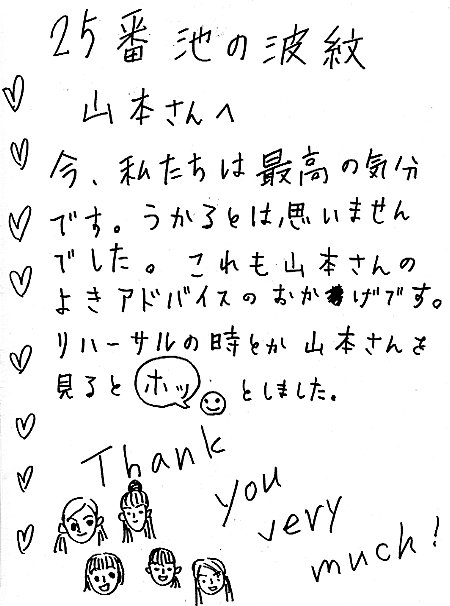 25番池の波紋
山本さんへ
今、私たちは最高の気分
です。うかるとは思いません
でした。これも山本さんの
よきアドバイスのおかげです。
リハーサルの時とか山本さんを
見ると ホッ としました。
Thank
you
very
much!